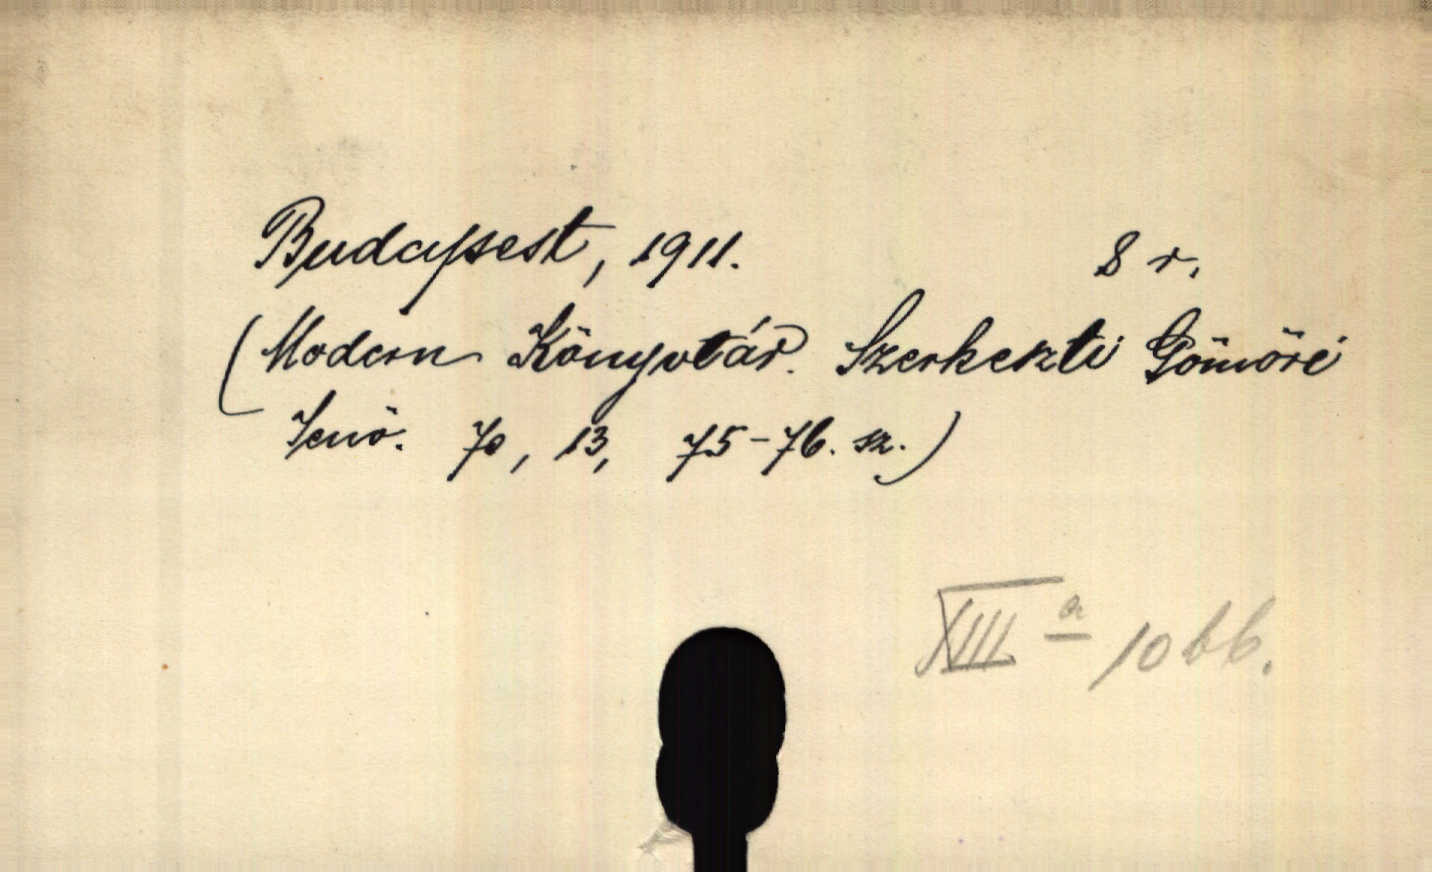 Budapest, 1911. 8 r.
(Modern Könyvtár. Szerkeszti Gömöri
Jenő. 70, 13, 75-76. sz.)
XIII a 10bb.